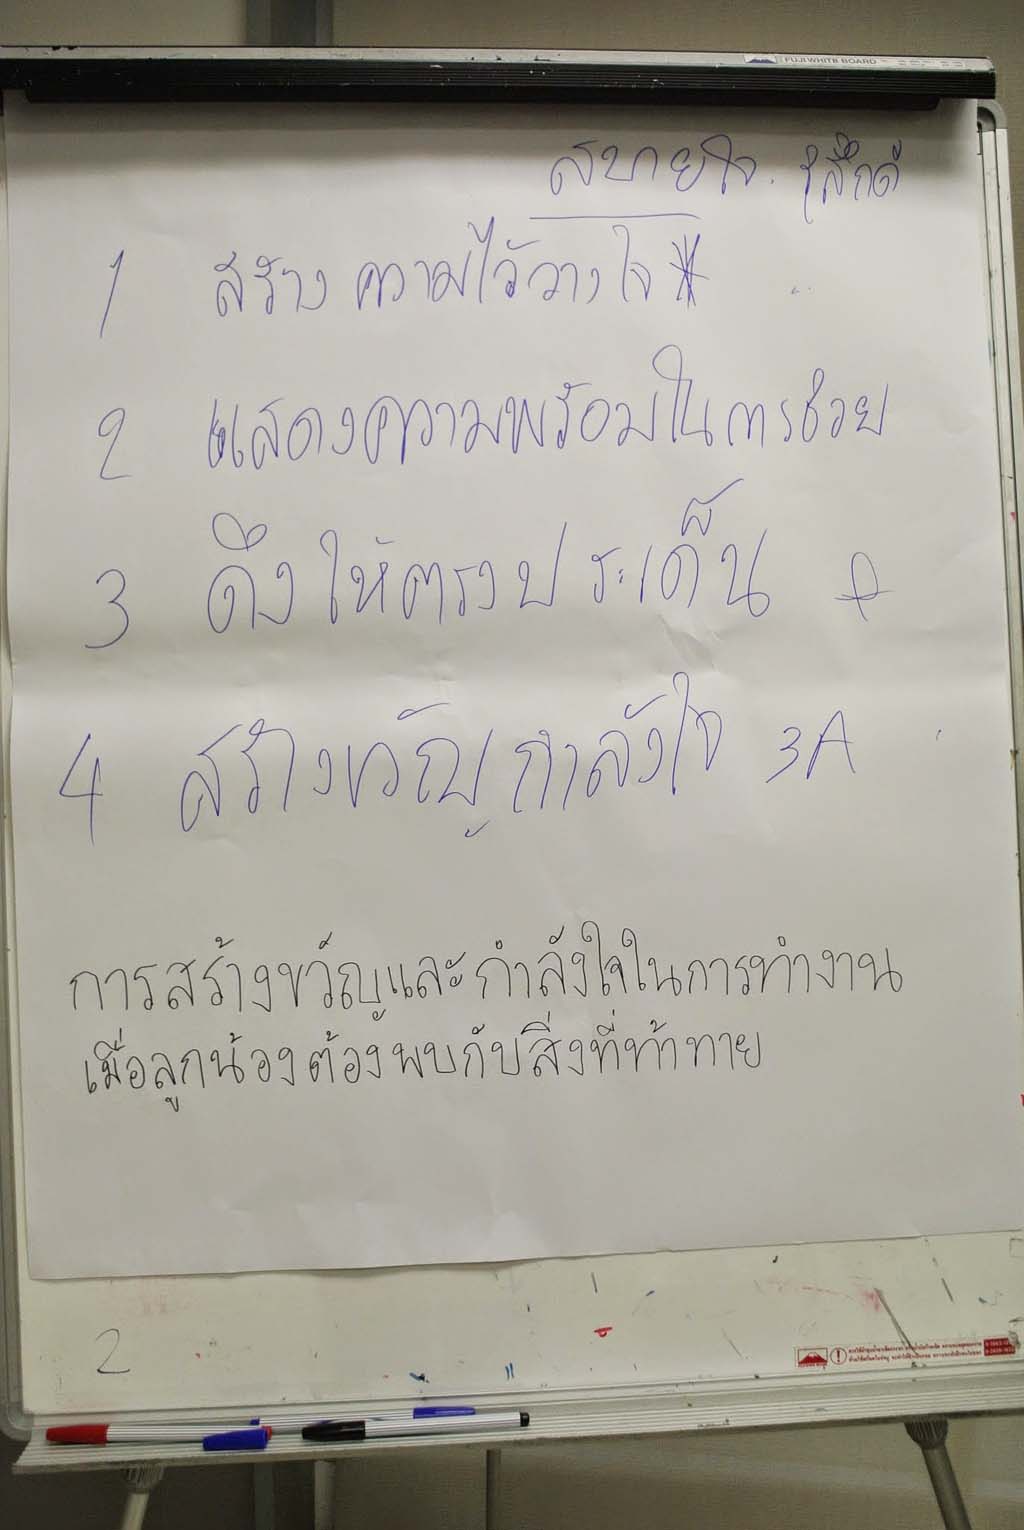 FUJI WHITE BOARD
สบายใจ. รู้สึกดี
1 สร้างความไว้วางใจ *
2 แสดงความพร้อมในการช่วย
3 ดึงให้ตรงประเด็น
4 สร้างขวัญกำลังใจ 3A
การสร้างขวัญและกำลังใจในการทำงาน
เมื่อลูกน้องต้องพบกับสิ่งที่ท้าทาย
2